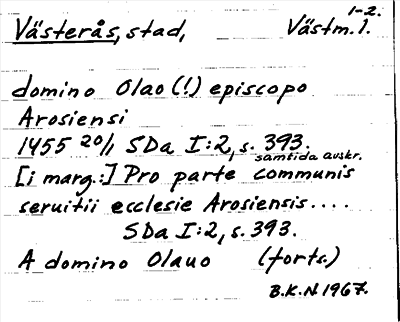 1-2.
Västerås, stad, Västm. l.
domino Olao (!) episcopo
Arosiensi
1455 20/1 SDa I:2, s. 393.
samtida avskr.
[i marg.:] Pro parte communis
seruitii ecclesie Arosiensis....
SDa I:2, s. 393.
A domino Olauo (forts.)
B.K.N. 1967.